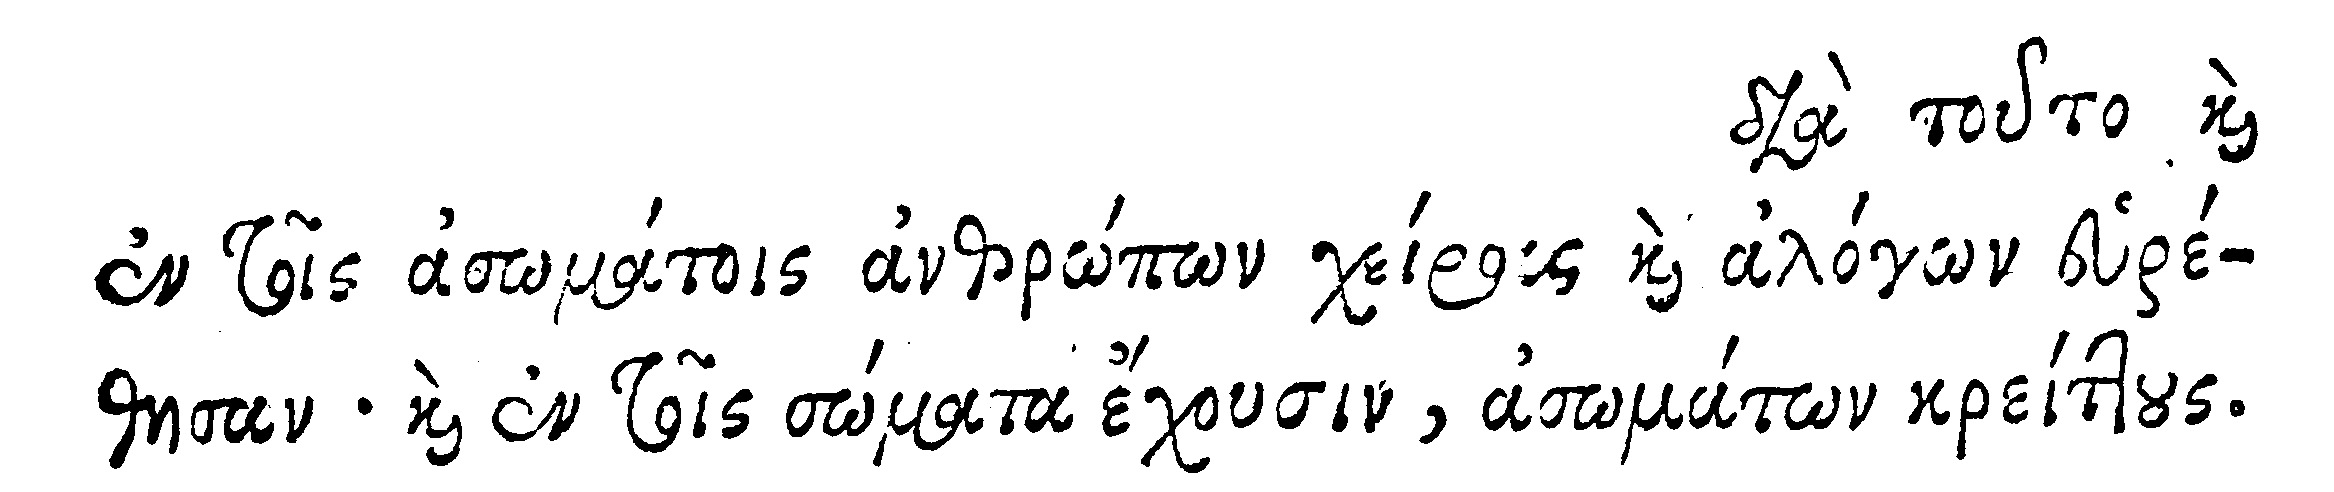 διὰ τοῦτο ϗ̀
ἐν τοῖς ἀσωμάτοις ἀνθρώπων χείρους ϗ̀ ἀλόγων εὑρέ-
θησαν · ϗ̀ ἐν τοῖς σώματα ἔχουσιν, ἀσωμάτων κρείττους.